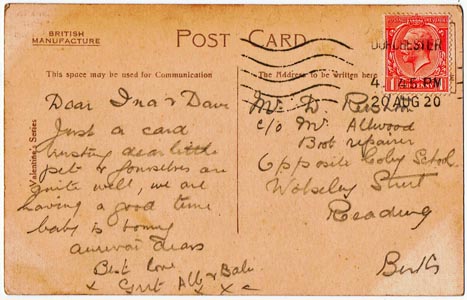 BRITISH
MANUFACTURE
POST CARD
This space may be used for Communication
The Address to be written here
Valentine's Series
DORCHESTER
4. 45 PM
20 AUG 20
Dear Ina & Dave
Just a card
trusting dear little
pet & yourselves are
quite well, we are
having a good time
baby is bonny
aurevoir dears
Best love
x Gert Alb & Babe
x x
Mr D.
c/o Mr Allwood
Boot repairer
Opposite School
Wolseley Street
Reading
Berks